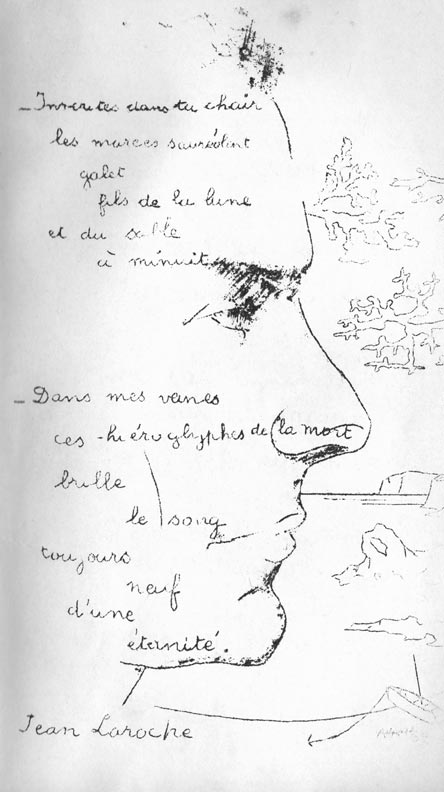 – Inscrites dans ta chair
les marées s'auréolent
galet
fils de la lune
et du sable
à minuit
– Dans mes veines
ces hiéroglyphes de la mort
brille
le sang
toujours
neuf
d'une
éternité.
Jean Laroche